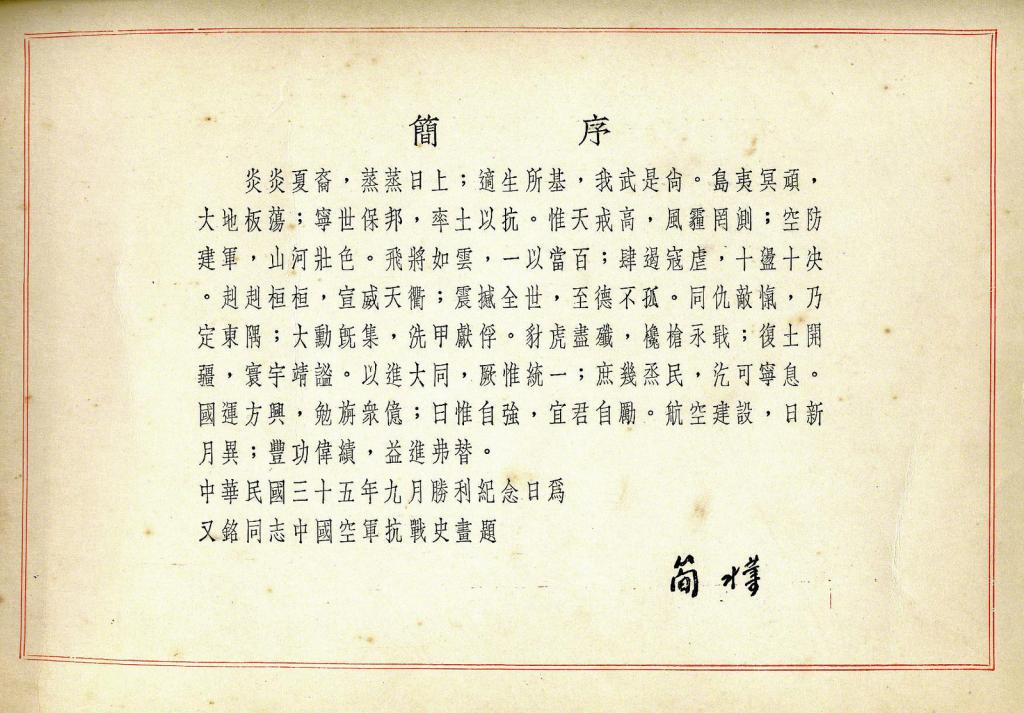 簡 序
炎炎夏裔，蒸蒸日上；適生所基，我武是尙。島夷冥頑，
大地板蕩；寧世保邦，率土以抗。惟天戒高，風霾罔測；空防
建軍，山河壯色。飛將如雲，一以當百；肆遏寇虐，十盪十決
。赳赳桓桓，宣威天衢；震撼全世，至德不孤。同仇敵愾，乃
定東隅；大勳旣集，洗甲獻俘。豺虎盡殲，欃槍永戢；復土開
疆，寰宇靖謐。以進大同，厥惟統一；庶幾烝民，汔可寧息。
國運方興，勉旃衆億；曰惟自強，宜君自勵。航空建設，日新
月異；豐功偉績，益進弗替。
中華民國三十五年九月勝利紀念日爲
又銘同志中國空軍抗戰史畫題
簡